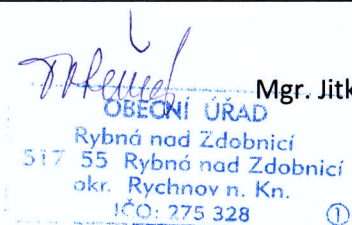 Mgr. Jitk
OBECNÍ ÚŘAD
Rybná nad Zdobnicí
517 55 Rybná nad Zdobnicí
okr. Rychnov n. Kn.
IČO: 275 328 ①